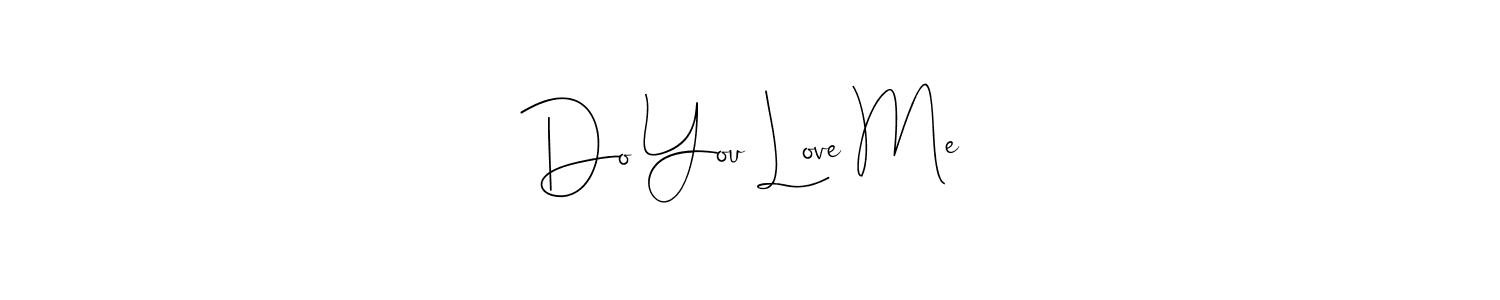 Do You Love Me